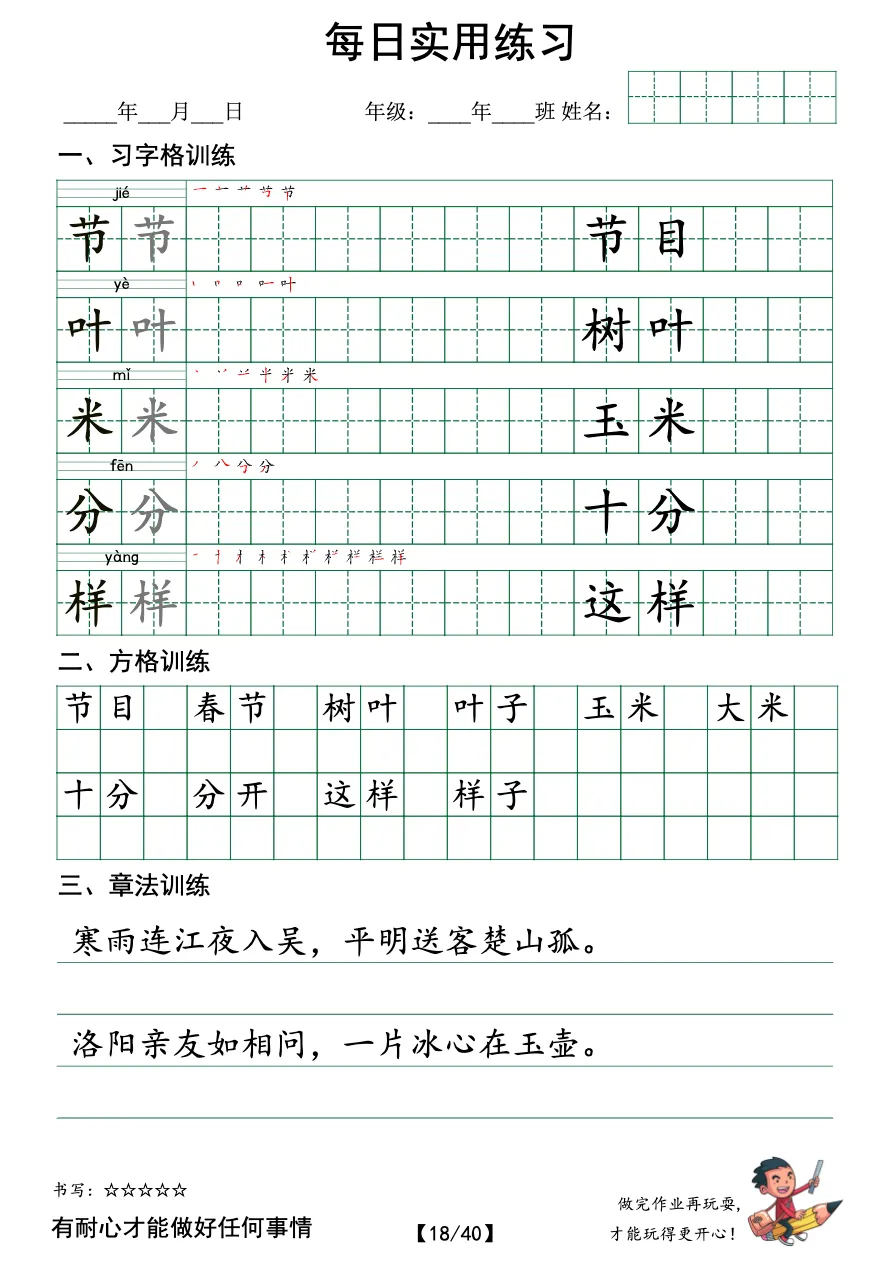 每日实用练习
_____年___月___日 年级：____年____班 姓名：
一、习字格训练
jié 一 节
节 节 节 目
yè 叶
叶 叶 树 叶
mǐ 米
米 米 玉 米
fēn 八 分 分
分 分 十 分
yàng 一 十 才 木 样
样 样 这 样
二、方格训练
节 目 春 节 树 叶 叶 子 玉 米 大 米
十 分 分 开 这 样 样 子
三、章法训练
寒雨连江夜入吴，平明送客楚山孤。
洛阳亲友如相问，一片冰心在玉壶。
书写：☆☆☆☆☆
有耐心才能做好任何事情
【18/40】
做完作业再玩耍，
才能玩得更开心！